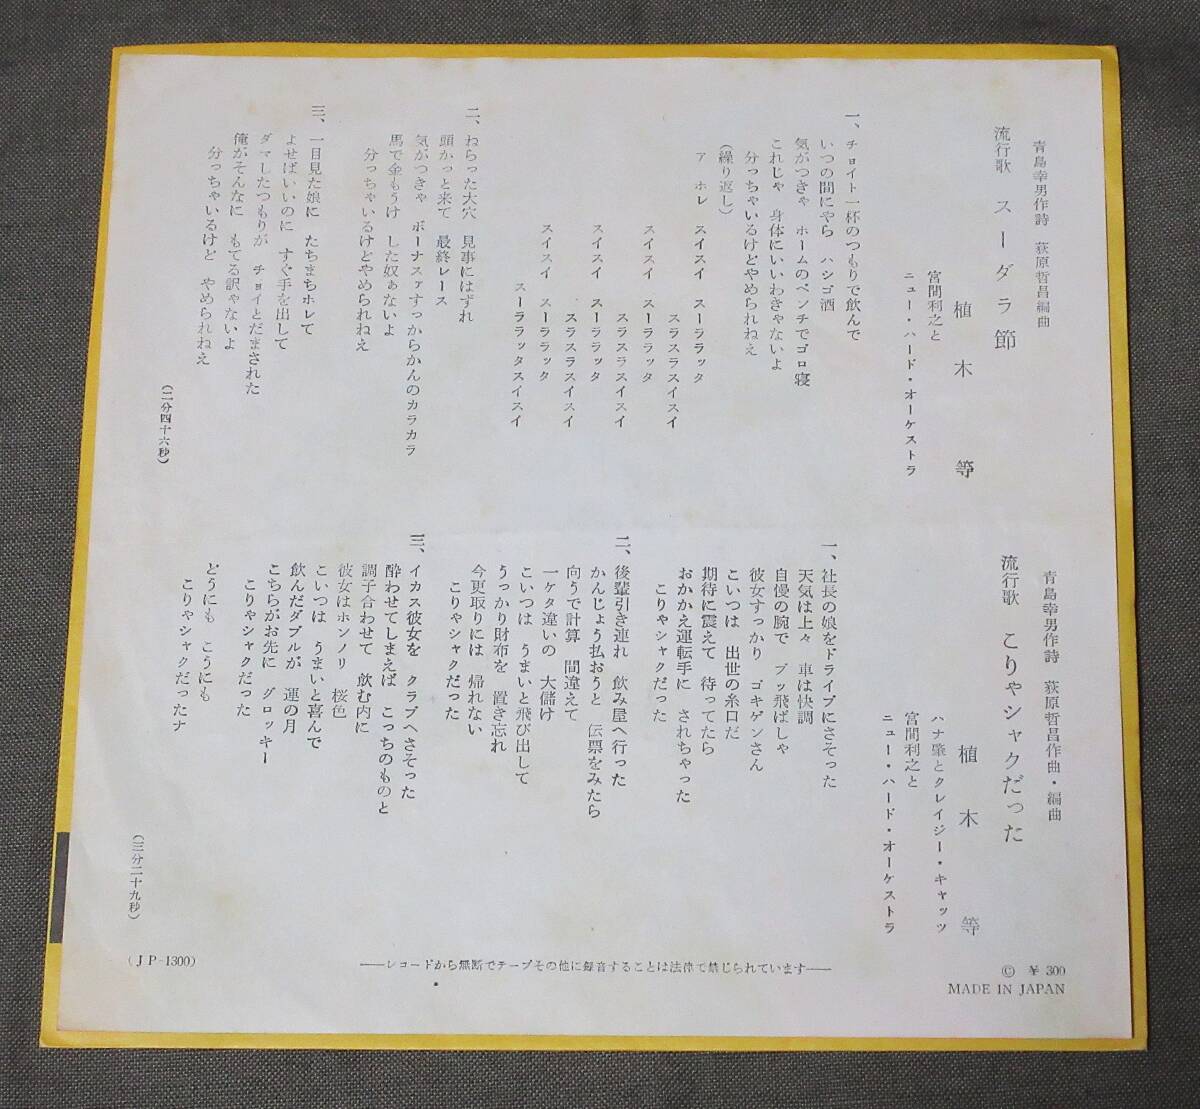 青島幸男作詩　萩原哲晶編曲
流行歌　スーダラ節
植木等
宮間利之と
ニュー・ハード・オーケストラ
一、チョイト一杯のつもりで飲んで
いつの間にやら　ハシゴ酒
気がつきゃ　ホームのベンチでゴロ寝
これじゃ　身体にいいわきゃないよ
分っちゃいるけどやめられねえ
（繰り返し）
ア　ホレ　スイスイ　スーララッタ
スラスラスイスイ
スイスイ　スーララッタ
スラスラスイスイ
スイスイ　スーララッタ
スラスラスイスイ
スイスイ　スーララッタ
スーララッタスイスイ
二、ねらった大穴　見事にはずれ
頭かっと来て　最終レース
気がつきゃ　ボーナスァすっからかんのカラカラ
馬で金もうけ　した奴ぁないよ
分っちゃいるけどやめられねえ
三、一目見た娘に　たちまちホレて
よせばいいのに　すぐ手を出して
ダマしたつもりが　チョイとだまされた
俺がそんなに　もてる訳ゃないよ
分っちゃいるけど　やめられねえ
（二分四十六秒）
青島幸男作詩　萩原哲昌作曲・編曲
流行歌　こりゃシャクだった
植木等
ハナ肇とクレイジー・キャッツ
宮間利之と
ニュー・ハード・オーケストラ
一、社長の娘をドライブにさそった
天気は上々　車は快調
自慢の腕で　ブッ飛ばしゃ
彼女すっかり　ゴキゲンさん
こいつは　出世の糸口だ
期待に震えて　待ってたら
おかかえ運転手に　されちゃった
こりゃシャクだった
二、後輩引き連れ　飲み屋へ行った
かんじょう払おうと　伝票をみたら
向うで計算　間違えて
一ケタ違いの　大儲け
こいつは　うまいと飛び出して
うっかり財布を　置き忘れ
今更取りには　帰れない
こりゃシャクだった
三、イカス彼女を　クラブへさそった
酔わせてしまえば　こっちのものと
調子合わせて　飲む内に
彼女はホンノリ　桜色
こいつは　うまいと喜んで
飲んだダブルが　運の月
こちらがお先に　グロッキー
こりゃシャクだった
どうにも　こうにも
こりゃシャクだったナ
（三分二十九秒）
(JP-1300)
——レコードから無断でテープその他に録音することは法律で禁じられています——
© ¥ 300
MADE IN JAPAN